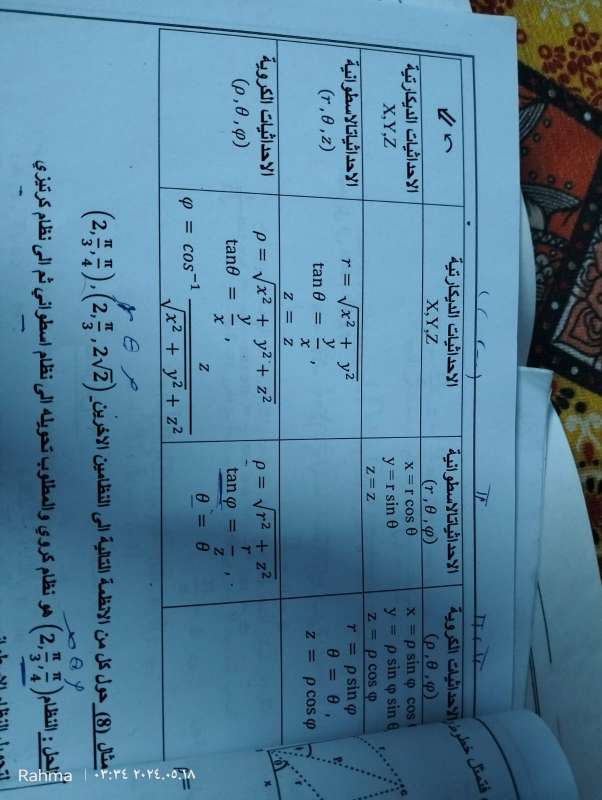 الاحداثيات الديكارتية
X,Y,Z
الاحداثيات الاسطوانية
(r, θ, φ)
الاحداثيات الكروية
(ρ, θ, φ)
الاحداثيات الديكارتية
X,Y,Z
x = r cos θ
y = r sin θ
z = z
x = ρ sin φ cos
y = ρ sin φ sin θ
z = ρ cos φ
الاحداثيات الاسطوانية
(r, θ, z)
r = √(x² + y²)
tan θ = y/x ,
z = z
r = ρ sin φ
θ = θ ,
z = ρ cos φ
الاحداثيات الكروية
(ρ, θ, φ)
ρ = √(x² + y² + z²)
tanθ = y/x ,
φ = cos⁻¹ z/√(x² + y² + z²)
ρ = √(r² + z²)
tan φ = r/z ,
θ = θ
مثال (8) حول كل من الانظمة التالية الى النظامين الاخرين (2, π/3, 2√2) , (2, π/3, π/4)
θ ρ
θ φ
الحل : النظام (2, π/3, π/4) هو نظام كروي والمطلوب تحويله الى نظام اسطواني ثم الى نظام كرتيزي
فتمثل خطوط
r
r
θ
x
Rahma | ٢٠٢٤.٠٥.١٨ ٠٣:٣٤